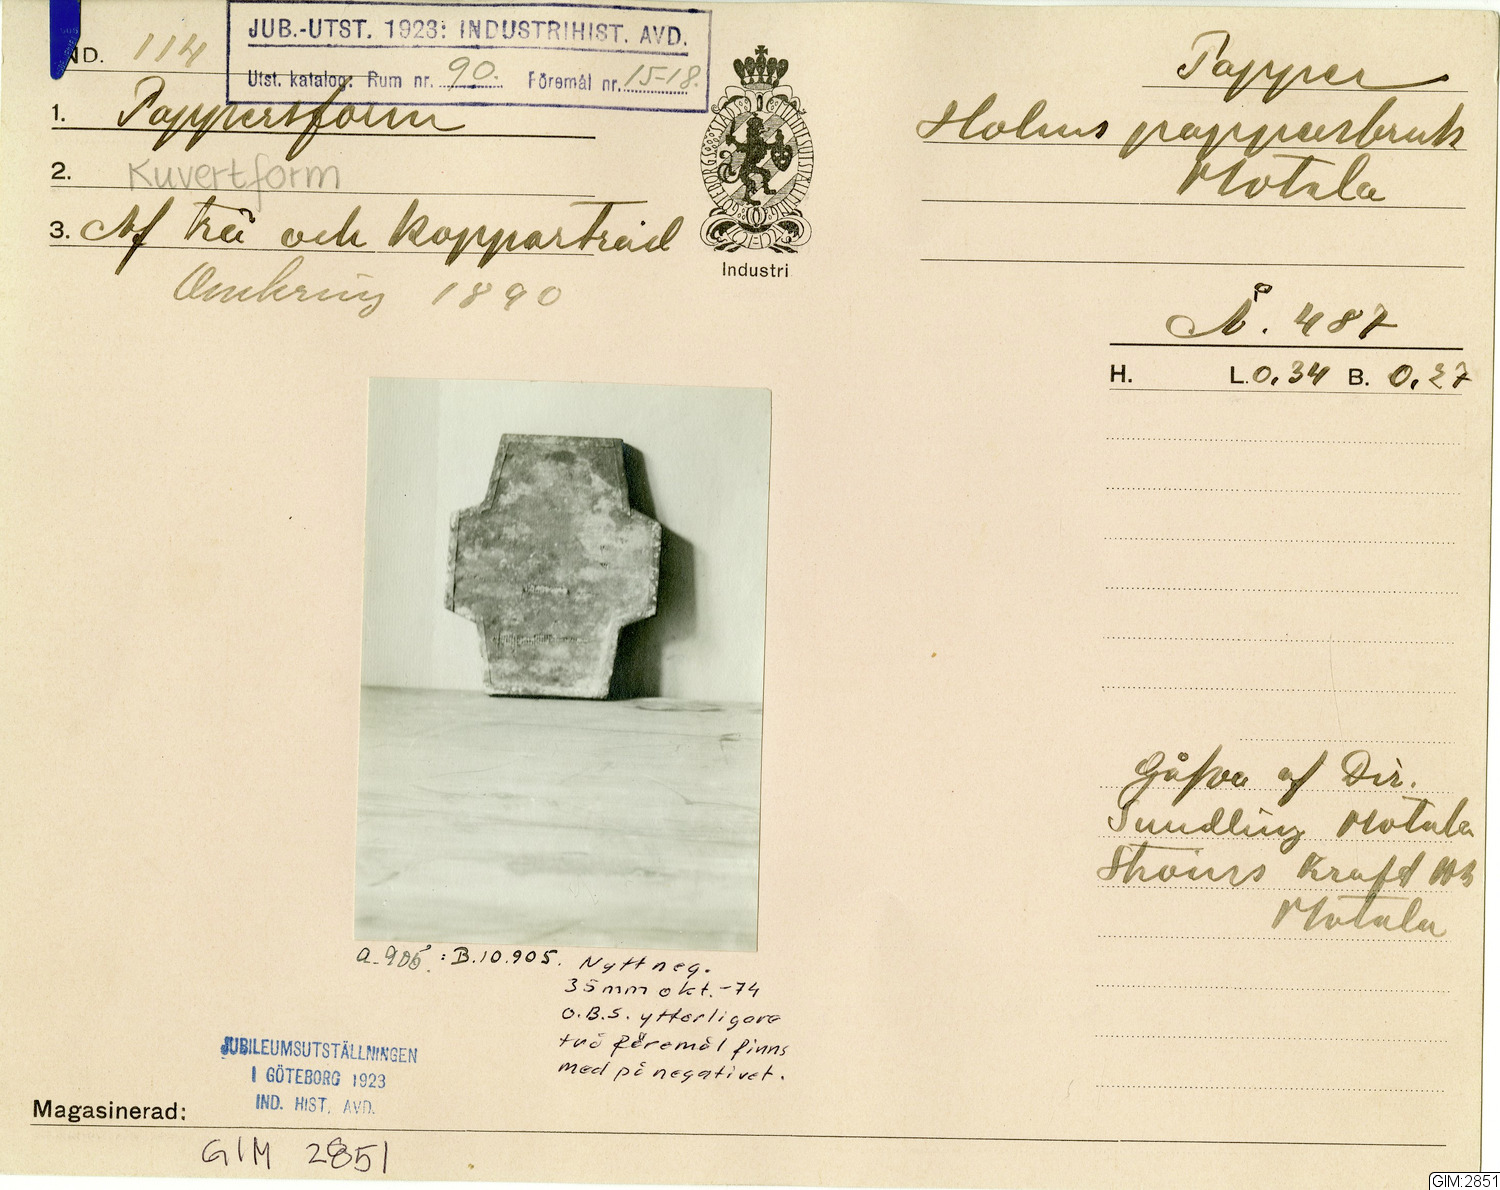 JUB.-UTST. 1923: INDUSTRIHIST. AVD.
Utst. katalog: Rum nr. 90. Föremål nr. 15-18.
ND. 114
1. Pappersform
2. Kuvertform
3. Af trä och koppartråd
Omkring 1890
GÖTEBORGS STADS
Industri
Papper
Holms pappersbruk
Motala
Å. 487
H. L. 0,34 B. 0,27
Gåfva af Dir.
Sundling Motala
Ströms Kraft
Motala
a. 905 : B.10.905. Nytt neg.
35mm okt.-74
O.B.S. ytterligare
två föremål finns
med på negativet.
JUBILEUMSUTSTÄLLNINGEN
I GÖTEBORG 1923
IND. HIST. AVD.
Magasinerad:
GIM 2851
GIM:2851